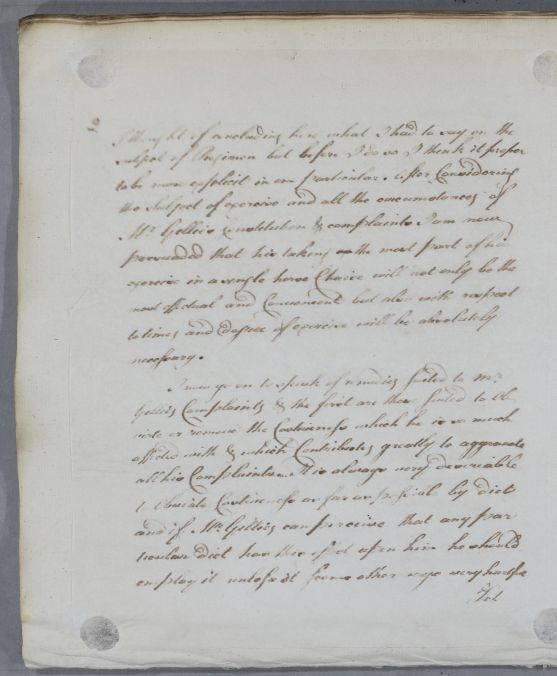 2
I thought of concluding here what I had to say on the
subject of Regimen but before I do so I think it proper
to be more explicit in one particular. After Considering
the Subject of exercise and all the circumstances of
Mr. Gellies Constitution & complaints I am now
persuaded that his taking the most part of his
exercise in a single horse Chaise will not only be the
most effectual and Convenient but also with respect
to times and Degree of exercise will be absolutely
necessary.
I now go on to speak of remedies suited to Mr.
Gellies Complaints & the first are those suited to ob
viate or remove the Costiveness which he is so much
afflicted with & which Contributes greatly to aggravate
all his Complaints. It is always very desireable
to obviate Costiveness as far as possible by diet
and if Mr. Gellies can perceive that any par
ticular diet has this effect upon him he should
employ it unless it seems other ways very hurtful
Yet